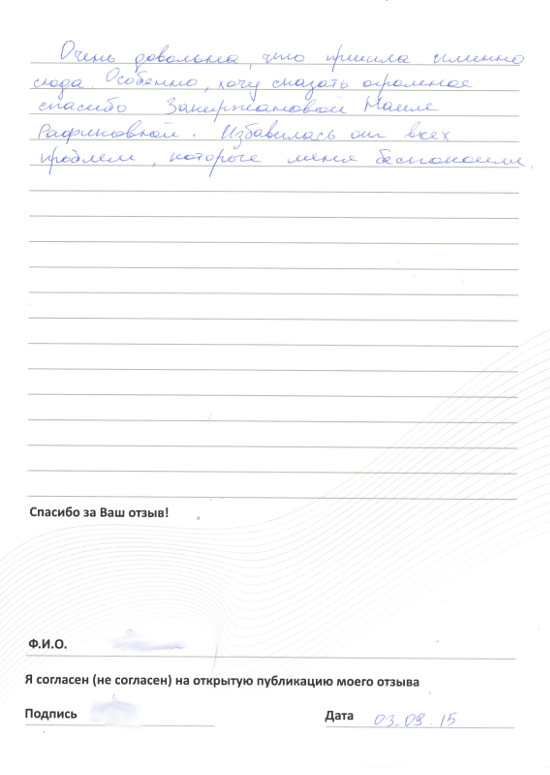 Очень довольна, что пришла именно
сюда. Особенно, хочу сказать огромное
спасибо Закиржановой Наиле
Рафиковной. Избавилась от всех
проблем, которые меня беспокоили.
Спасибо за Ваш отзыв!
Ф.И.О.
Я согласен (не согласен) на открытую публикацию моего отзыва
Подпись Дата 03.09.15